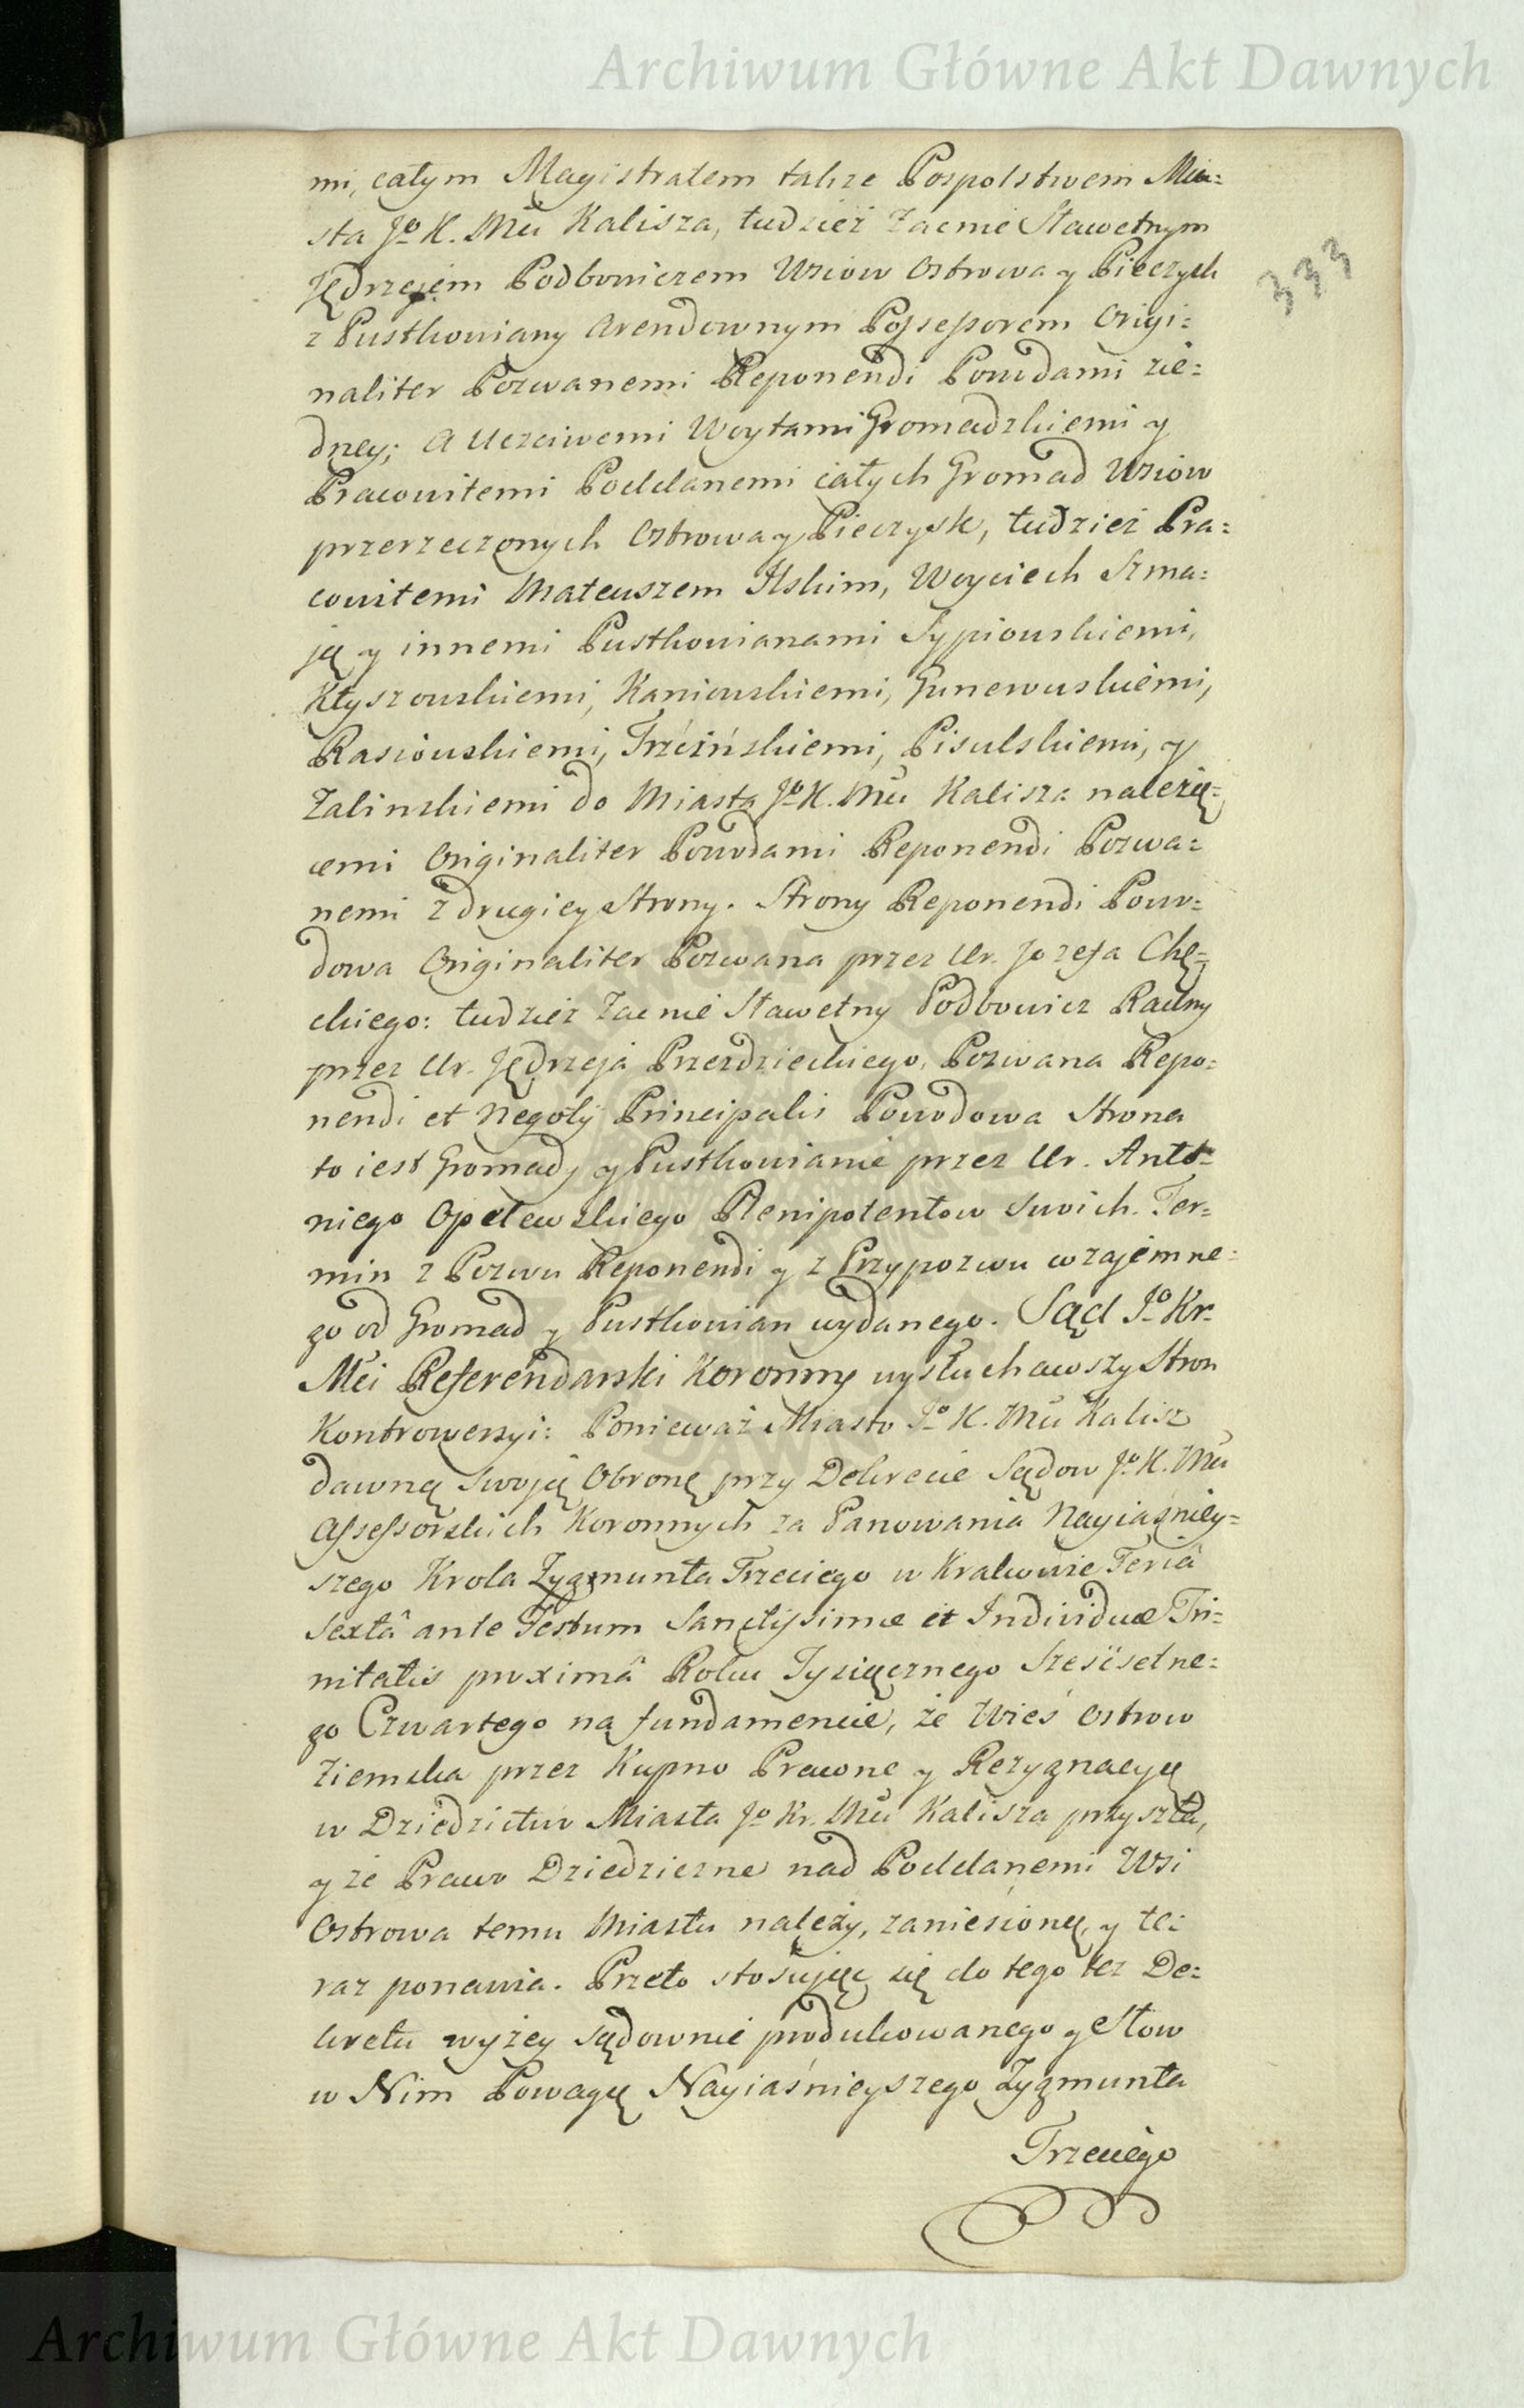 Archiwum Główne Akt Dawnych
333
mi, całym Magistratem takze Pospolstwem Mia=
sta Jo K. Mci Kalisza, tudzież Zacnie Sławetnym
Jędrzejem Podbowiczem Wsiow Ostrowa y Pieczysk
z Pustkowiany Arendownym Possessorem Origi=
naliter Pozwanemi Reponendi Powodami zie=
dney; a Uczciwemi Woytami Gromadzkiemi y
Pracowitemi Poddanemi całych Gromad Wsiow
przerzeczonych Ostrowa y Pieczysk, tudzież Pra=
cowitemi Mateuszem Ilskim, Woyciech Szma=
ją y innemi Pustkowianami Sypiowskiemi,
Kłyszowskiemi, Kaniowskiemi, Gunewuskiemi,
Rasiowskiemi, Trzcińskiemi, Pisulskiemi, y
Zalinskiemi do Miasta Jo K. Mci Kalisza należą=
cemi Originaliter Powodami Reponendi Pozwa=
nemi z drugiey Strony. Strony Reponendi Powo=
dowa Originaliter Pozwana przez Ur. Jozefa Chę=
ckiego: tudzież Zacnie Sławetny Podbowicz Radny
przez Ur. Jędrzeja Przezdzieckiego, Pozwana Repo=
nendi et Negotij Principalis Powodowa Strona
to iest Gromady y Pustkowianie przez Ur. Anto=
niego Opatewskiego Plenipotentow Swoich. Ter=
min z Pozwu Reponendi y z Przypozwu wzajemne=
go od Gromad y Pustkowian wydanego. Sąd Jo Kr.
Mci Referendarski Koronny wysłuchawszy Stron
Kontrowersyi: Ponieważ Miasto Jo K. Mci Kalisz
dawną Swoją Obronę przy Dekrecie Sądow Jo K. Mci
Assessorskich Koronnych za Panowania Nayiaśniey=
szego Krola Zygmunta Trzeciego w Krakowie Feriâ
Sextâ ante Festum Sanctissimæ et Individuæ Tri=
nitatis proximâ Roku Tysiącznego Sześćsetne=
go Czwartego na fundamencie, że Wieś Ostrow
Ziemska przez Kupno Prawne y Rezygnacyą
w Dziedzictwo Miasta Jo Kr. Mci Kalisza przyszła,
y że Prawo Dziedziczne nad Poddanemi Wsi
Ostrowa temu Miastu należy, zaniesioną y te=
raz ponawia. Przeto stosując się do tego też De=
kretu wyżey sądownie produkowanego y Słow
w Nim Powagą Nayiaśnieyszego Zygmunta
Trzeciego
Archiwum Główne Akt Dawnych